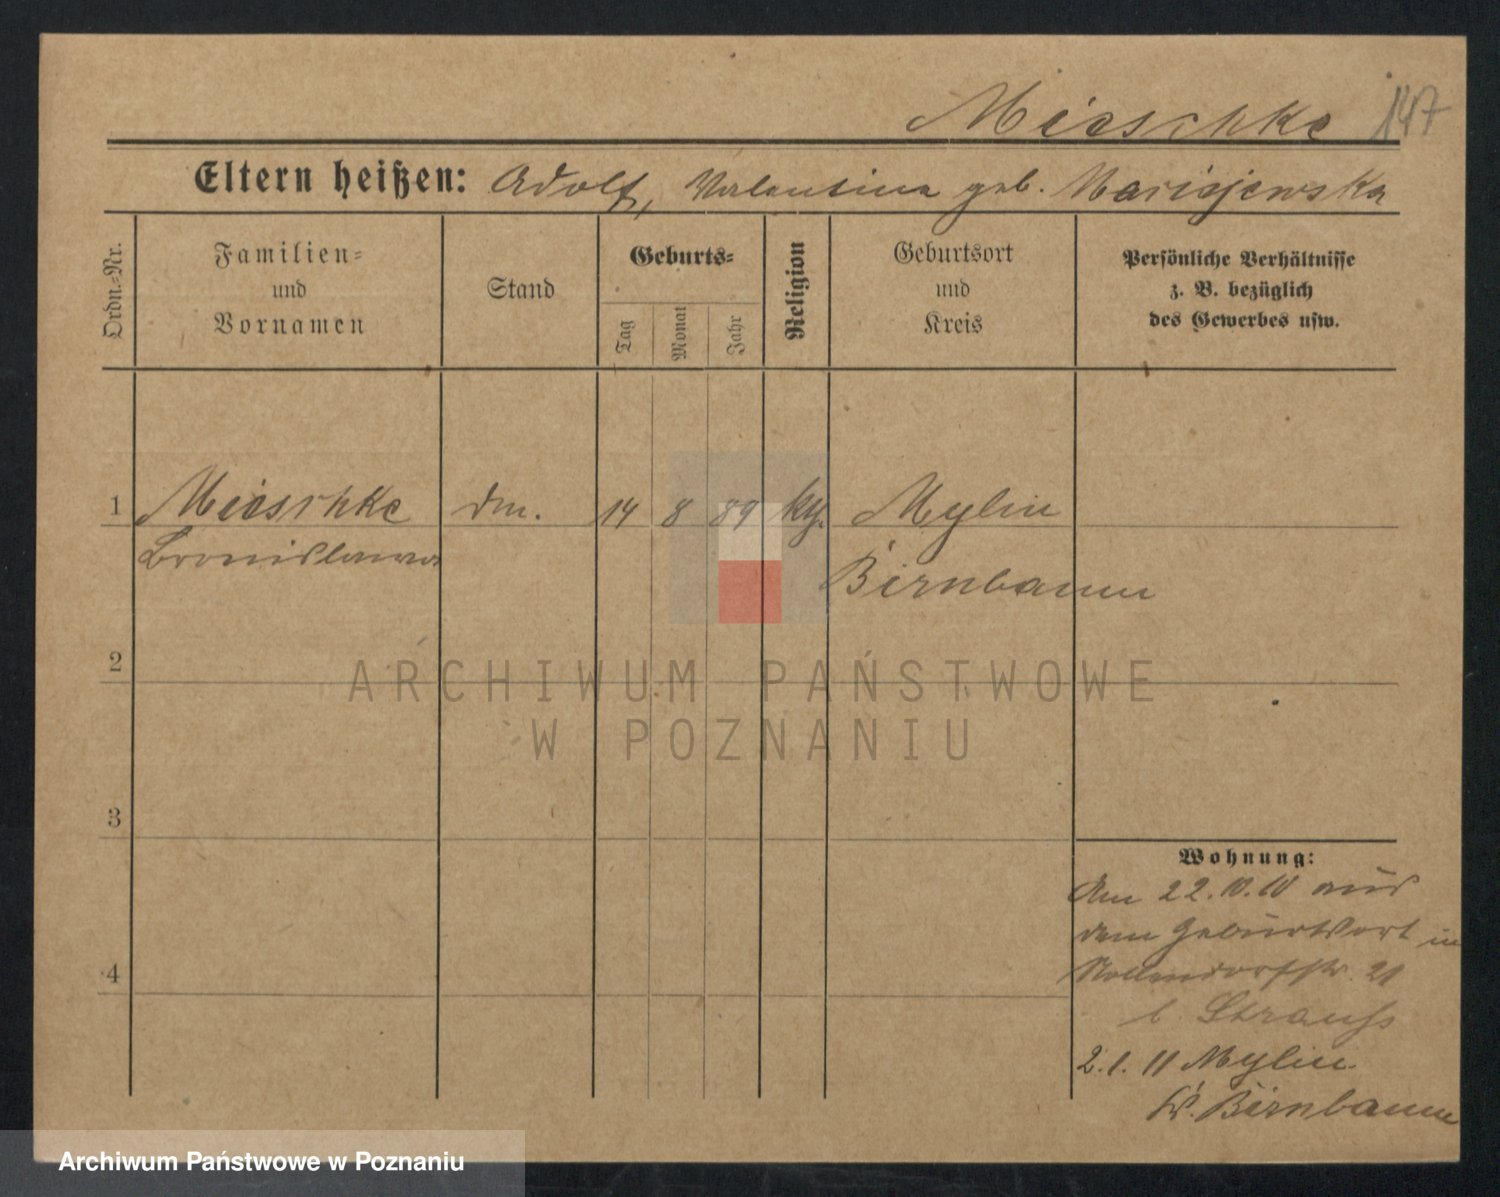 Mieschke 147
Eltern heißen: Adolf, Valentina geb.
Ordn.-Nr.
Familien-
und
Vornamen
Stand
Geburts-
Tag
Monat
Jahr
Religion
Geburtsort
und
Kreis
Persönliche Verhältnisse
z. B. bezüglich
des Gewerbes usw.
1 Mieschke
Bronislawa
14 8 89
Mylin
Birnbaum
2
3
4
Wohnung:
Am 22.10.10 aus
dem Geburtsort in
Nollendorfstr. 21
b. Strauss
2.1.11 Mylin
Kr. Birnbaum
ARCHIWUM PAŃSTWOWE
W POZNANIU
Archiwum Państwowe w Poznaniu